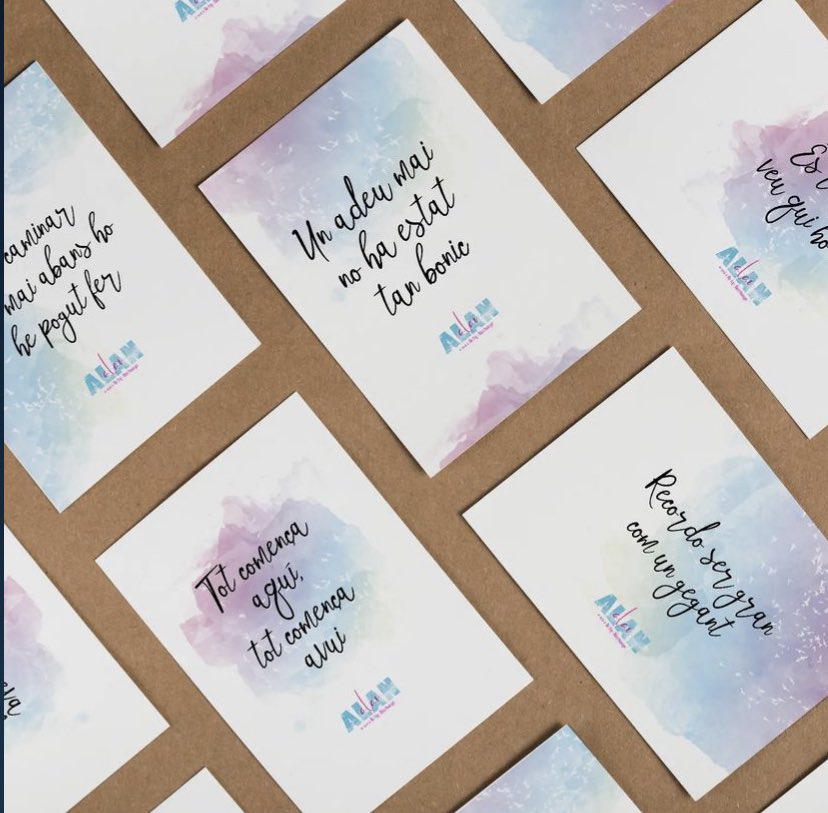 caminar
mai abans ho
he pogut fer
ALAN
Un adeu mai
no ha estat
tan bonic
ALAN
Es
veu qui ho
ALAN
Tot comença
aquí,
tot comença
avui
ALAN
Recordo ser gran
com un gegant
ALAN